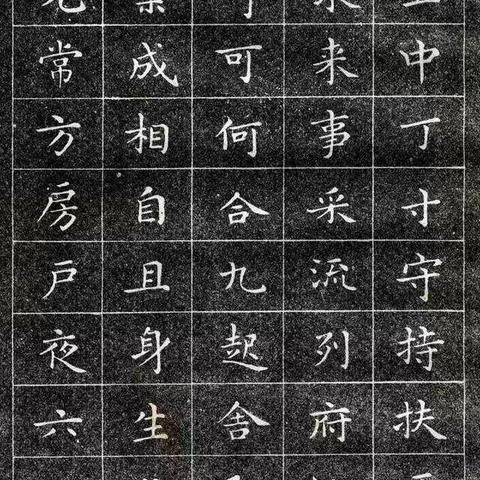 中丁寸守持扶
来事采流列府
可何合九起舍
成相自且身生
常方房户夜六